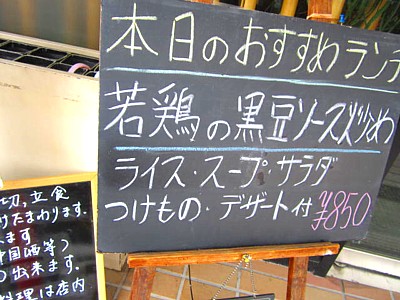 本日のおすすめランチ
若鶏の黒豆ソース炒め
ライス・スープ・サラダ
つけもの・デザート付 ¥850
切,立食
けたまわります。
ます
中国酒等)
出来ます。
料理は店内